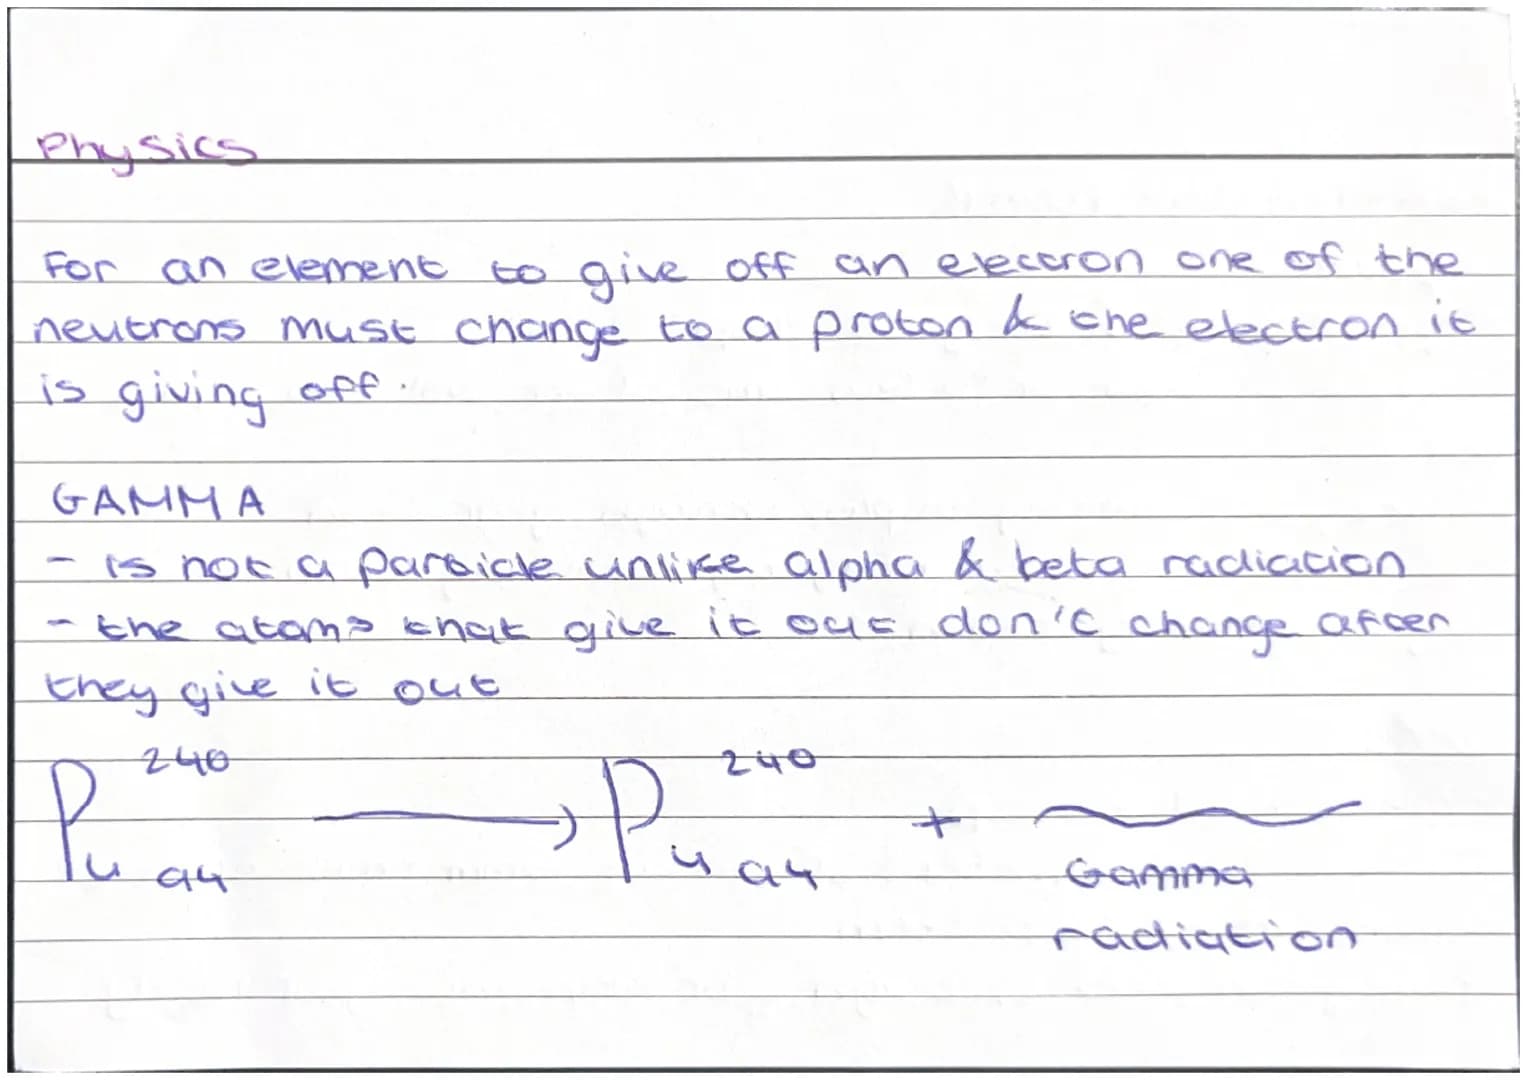 Physics
For an element to give off an electron one of the
neutrons must change to a proton & the electron it
is giving off.
GAMMA
- is not a particle unlike alpha & beta radiation
- the atoms that give it out don't change after
they give it out
Pu 240 94 → Pu 240 94 +
Gamma
radiation